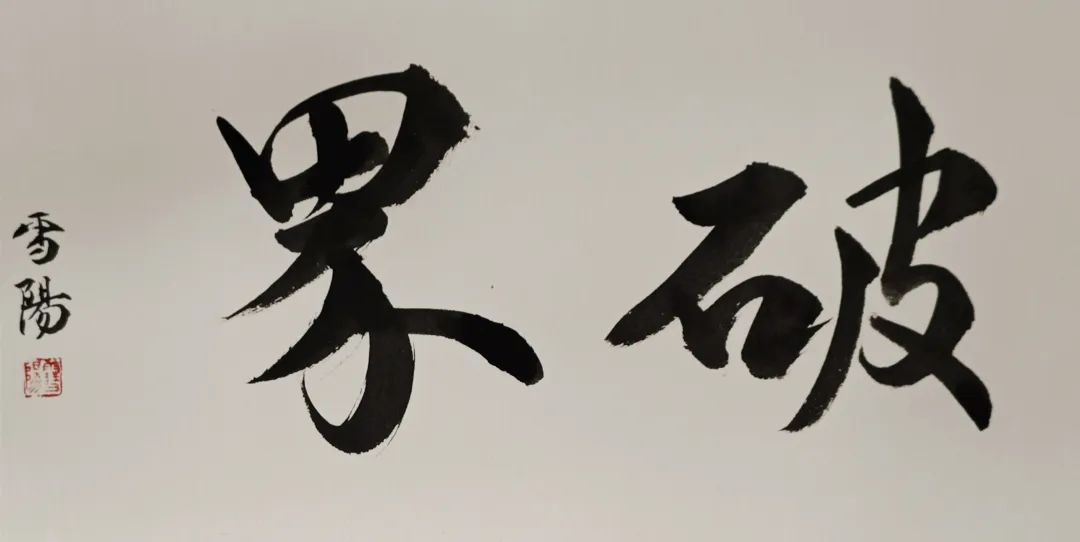 破界
雪陽